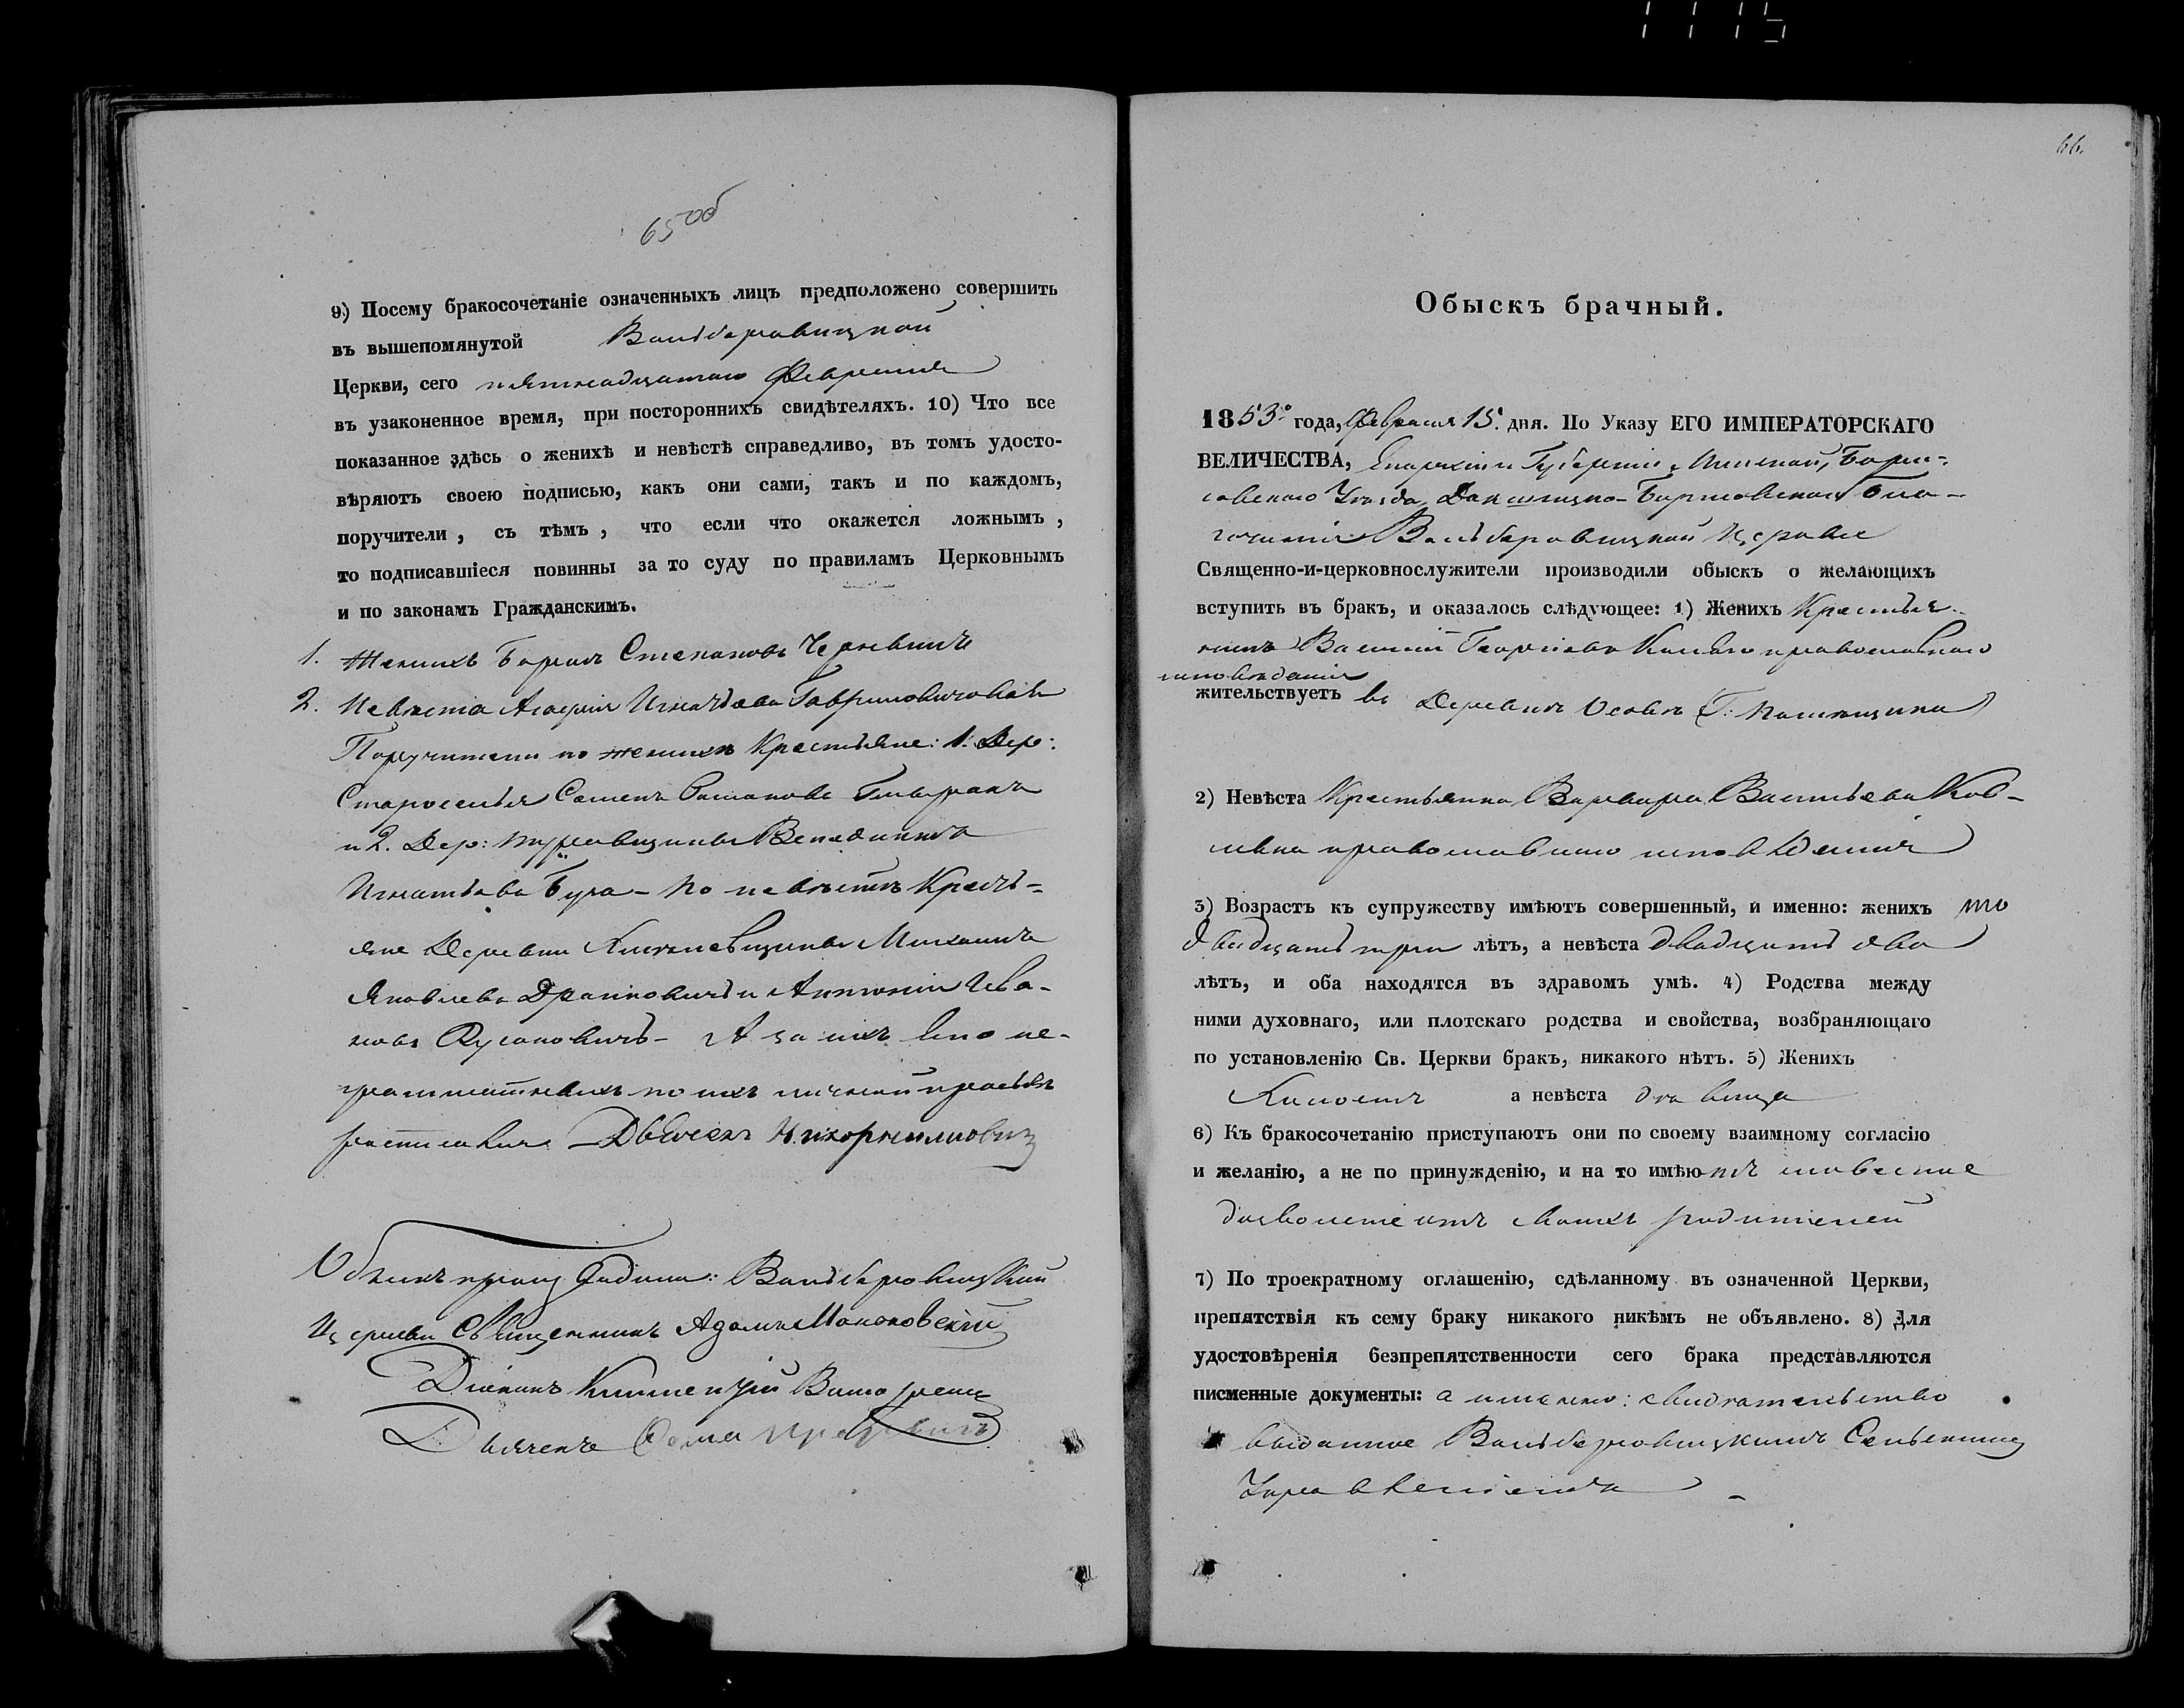 65 об
9) Посему бракосочетаніе означенныхъ лицъ предположено совершить
въ вышепомянутой Вольберовицкой
Церкви, сего пятнадцатаго Февраля
въ узаконенное время, при постороннихъ свидѣтеляхъ. 10) Что все
показанное здѣсь о женихѣ и невѣстѣ справедливо, въ томъ удосто-
вѣряютъ своею подписью, какъ они сами, такъ и по каждомъ,
поручители, съ тѣмъ, что если что окажется ложнымъ,
то подписавшіеся повинны за то суду по правиламъ Церковнымъ
и по законамъ Гражданскимъ.
1. Женихъ Степановъ
2. Невѣста Агафія Игнатьева
Поручители по женихѣ Крестьяне: 1. Дер:
Староселья Семенъ
и 2. Дер: Венедиктъ
Игнатьевъ Буга - по невѣстѣ Кресть-
яне Деревни Михаилъ
Яковлевъ и Антоній Ива-
новъ - А за ихъ не-
грамотныхъ по ихъ личной просьбѣ
росписался Дьячекъ
Обыскъ производили: Вольберовицкой
Церкви Священникъ Адамъ
Діаконъ
Дьячекъ Ѳома
66.
Обыскъ брачный.
1853го года, Февраля 15. дня. По Указу ЕГО ИМПЕРАТОРСКАГО
ВЕЛИЧЕСТВА, Епархіи и Губерніи Минской, Бори-
совскаго Уѣзда, Докшицко-Борисовскаго Бла-
гочинія Вольберовицкой Церкви
Священно-и-церковнослужители производили обыскъ о желающихъ
вступить въ бракъ, и оказалось слѣдующее: 1) Женихъ Крестья-
нинъ Василій Георгіевъ православнаго
исповѣданія
жительствуетъ въ Деревнѣ
2) Невѣста Крестьянка Варвара Васильева
православнаго исповѣданія
3) Возрастъ къ супружеству имѣютъ совершенный, и именно: женихъ
двадцать три лѣтъ, а невѣста двадцать два
лѣтъ, и оба находятся въ здравомъ умѣ. 4) Родства между
ними духовнаго, или плотскаго родства и свойства, возбраняющаго
по установленію Св. Церкви бракъ, никакого нѣтъ. 5) Женихъ
Холостъ а невѣста дѣвица
6) Къ бракосочетанію приступаютъ они по своему взаимному согласію
и желанію, а не по принужденію, и на то имѣютъ словесное
дозволеніе отъ своихъ родителей
7) По троекратному оглашенію, сдѣланному въ означенной Церкви,
препятствія къ сему браку никакого никѣмъ не объявлено. 8) Для
удостовѣренія безпрепятственности сего брака представляются
писменные документы: а именно: свидѣтельство
выданное Вольберовицкимъ Сельскимъ
Управленіемъ